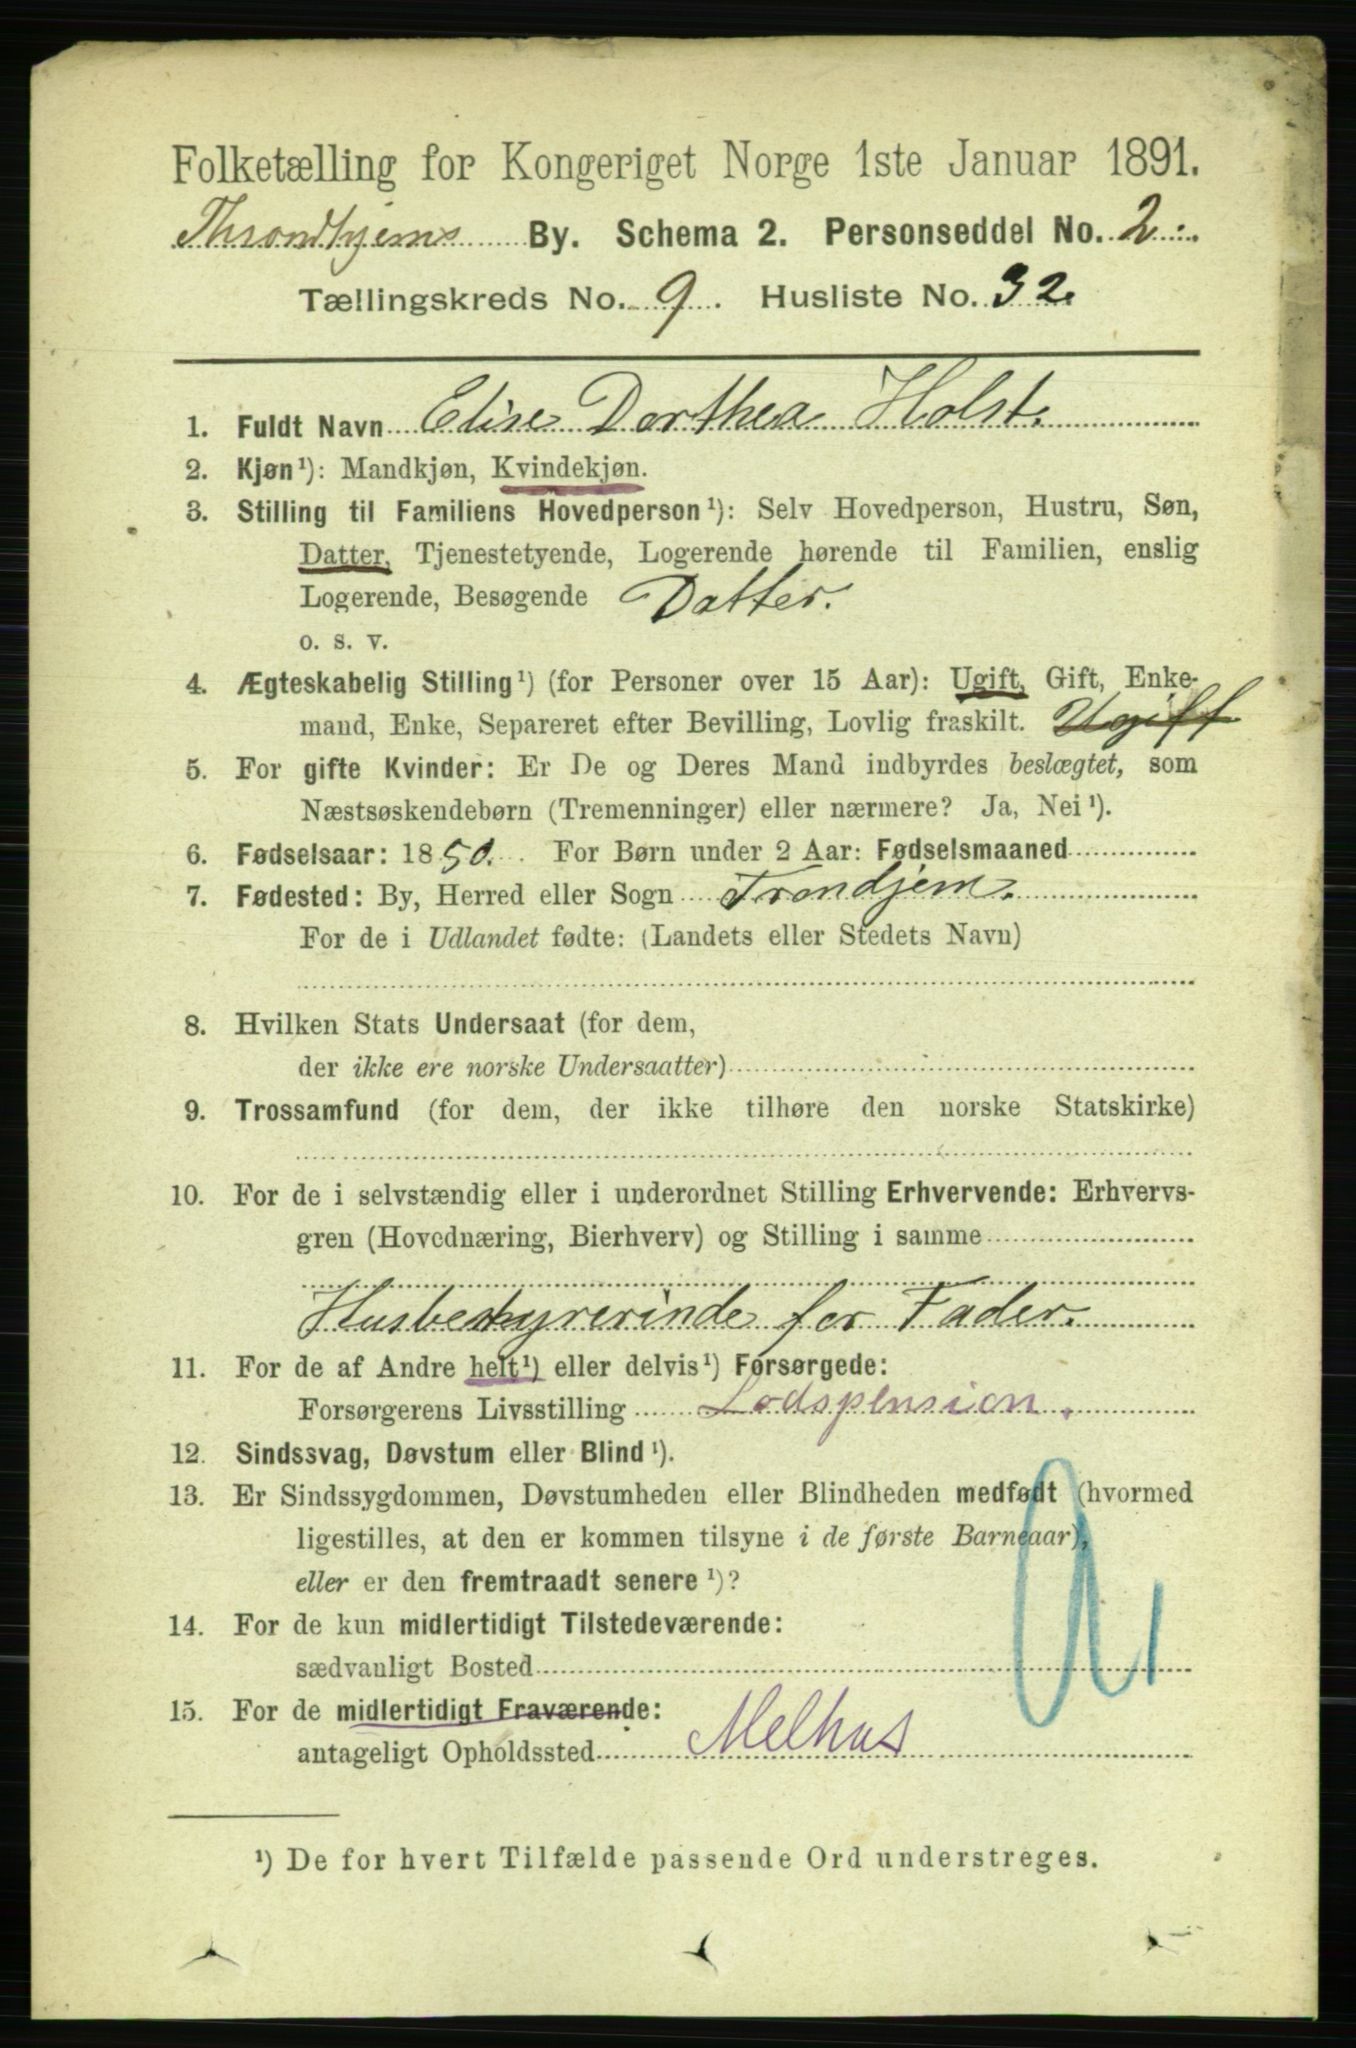 Folketælling for Kongeriget Norge 1ste Januar 1891.
Throndhjems By. Schema 2. Personseddel No. 2.
Tællingskreds No. 9. Husliste No. 32.
1. Fuldt Navn Elise Dorthea Holst.
2. Kjøn¹): Mandkjøn, Kvindekjøn.
3. Stilling til Familiens Hovedperson¹): Selv Hovedperson, Hustru, Søn,
Datter, Tjenestetyende, Logerende hørende til Familien, enslig
Logerende, Besøgende Datter.
o. s. v.
4. Ægteskabelig Stilling¹) (for Personer over 15 Aar): Ugift, Gift, Enke-
mand, Enke, Separeret efter Bevilling, Lovlig fraskilt. Ugift
5. For gifte Kvinder: Er De og Deres Mand indbyrdes beslægtet, som
Næstsøskendebørn (Tremenninger) eller nærmere? Ja, Nei¹).
6. Fødselsaar: 1850. For Børn under 2 Aar: Fødselsmaaned
7. Fødested: By, Herred eller Sogn Trondjem.
For de i Udlandet fødte: (Landets eller Stedets Navn)
8. Hvilken Stats Undersaat (for dem,
der ikke ere norske Undersaatter)
9. Trossamfund (for dem, der ikke tilhøre den norske Statskirke)
10. For de i selvstændig eller i underordnet Stilling Erhvervende: Erhvervs-
gren (Hovednæring, Bierhverv) og Stilling i samme
Husbestyrerinde for Fader.
11. For de af Andre helt¹) eller delvis¹) Forsørgede:
Forsørgerens Livsstilling Lodspension.
12. Sindssvag, Døvstum eller Blind¹).
13. Er Sindssygdommen, Døvstumheden eller Blindheden medfødt (hvormed
ligestilles, at den er kommen tilsyne i de første Barneaar),
eller er den fremtraadt senere¹)?
14. For de kun midlertidigt Tilstedeværende:
sædvanligt Bosted
15. For de midlertidigt Fraværende:
antageligt Opholdssted Melhus
¹) De for hvert Tilfælde passende Ord understreges.